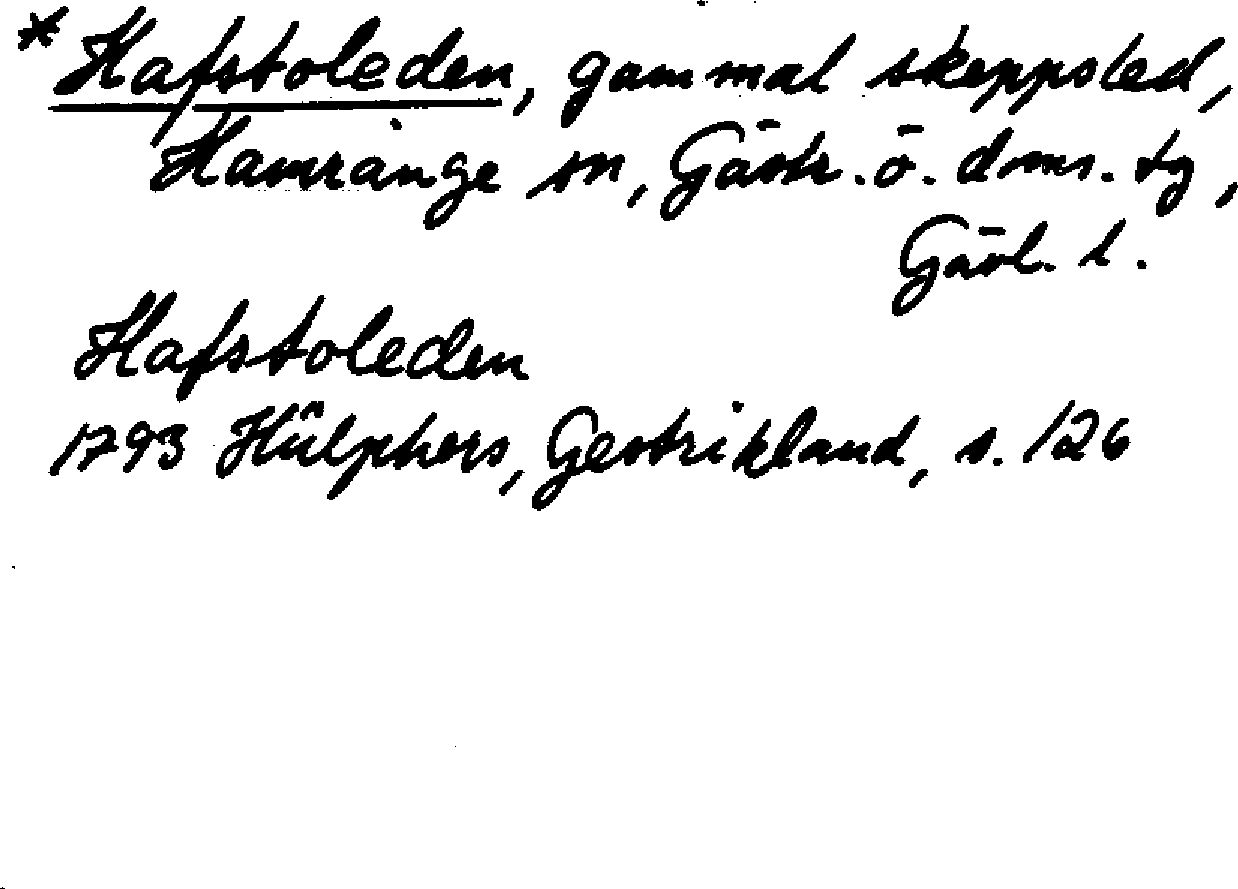 * Hafstoleden, gammal skeppsled,
Hamrånge sn, Gästr. ö. doms. tg,
Gävl. l.
Hafstoleden
1793 Hülphers, Gestrikland, s. 126